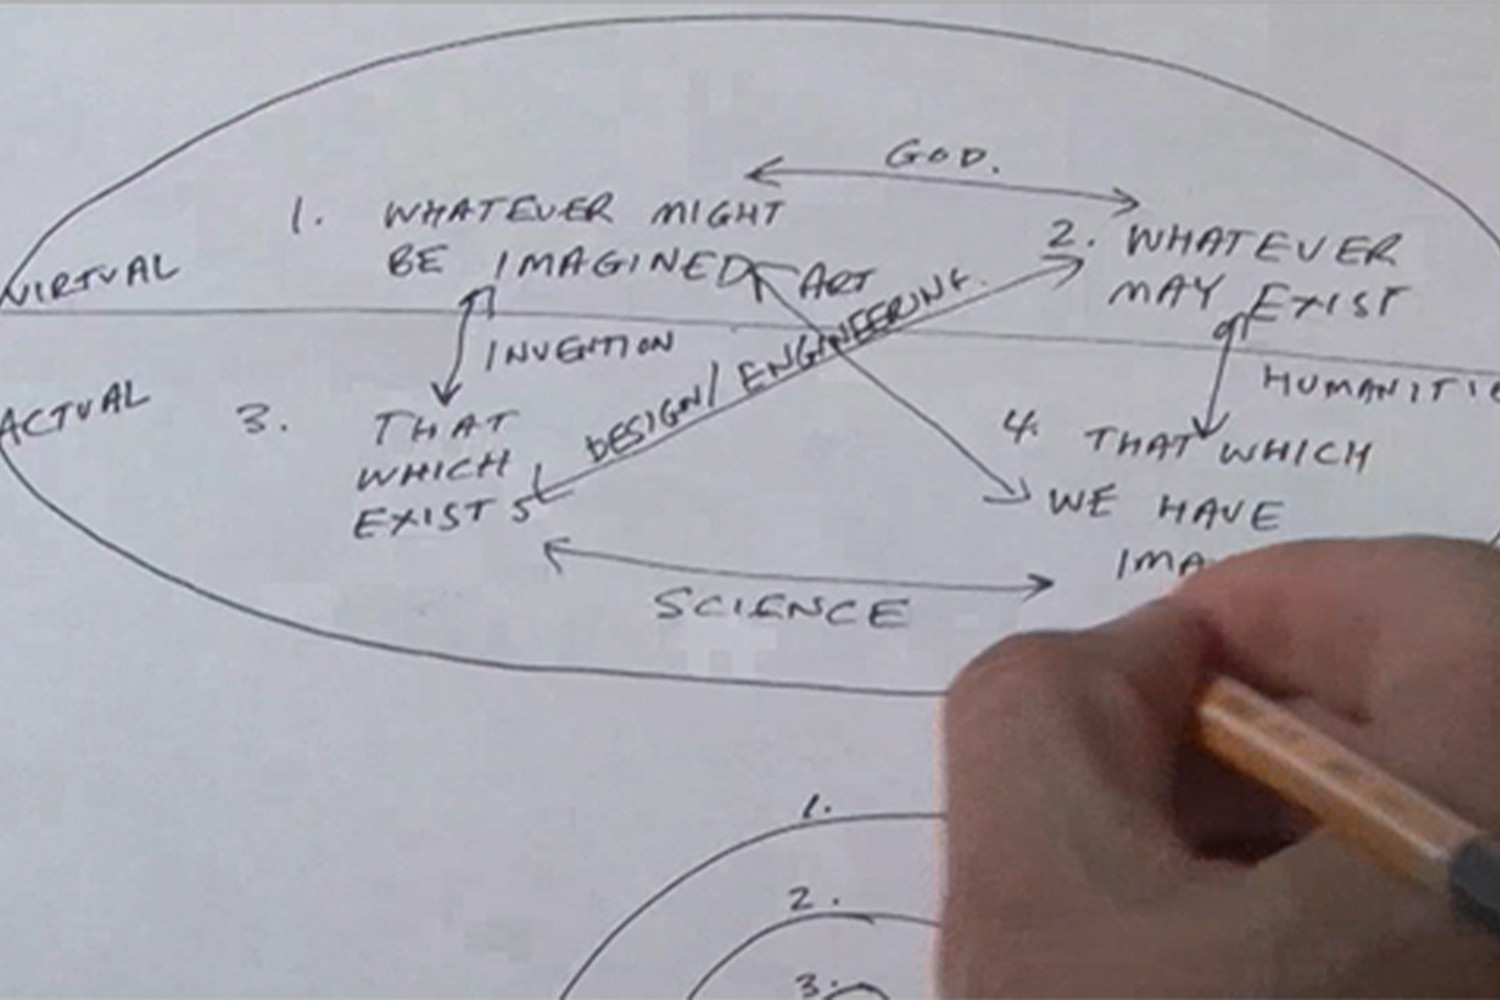 GOD.
1. WHATEVER MIGHT
BE IMAGINED
2. WHATEVER
MAY EXIST
VIRTUAL
ART
DESIGN/ENGINEERING.
INVENTION
ACTUAL
HUMANITIE
3. THAT
WHICH
EXISTS
4. THAT WHICH
WE HAVE
IMA
SCIENCE
1.
2.
3.